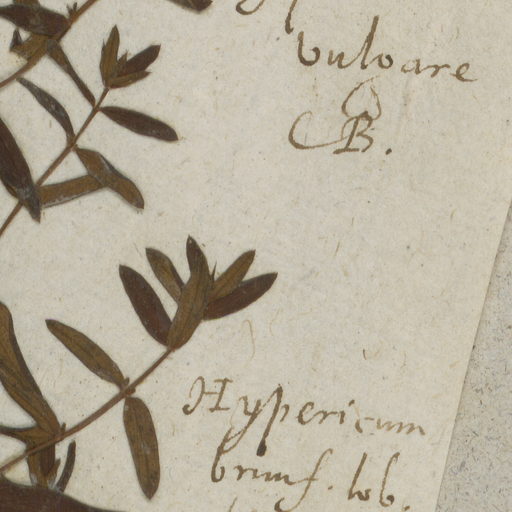 vulgare
CB.
Hypericum
brunf. lob.